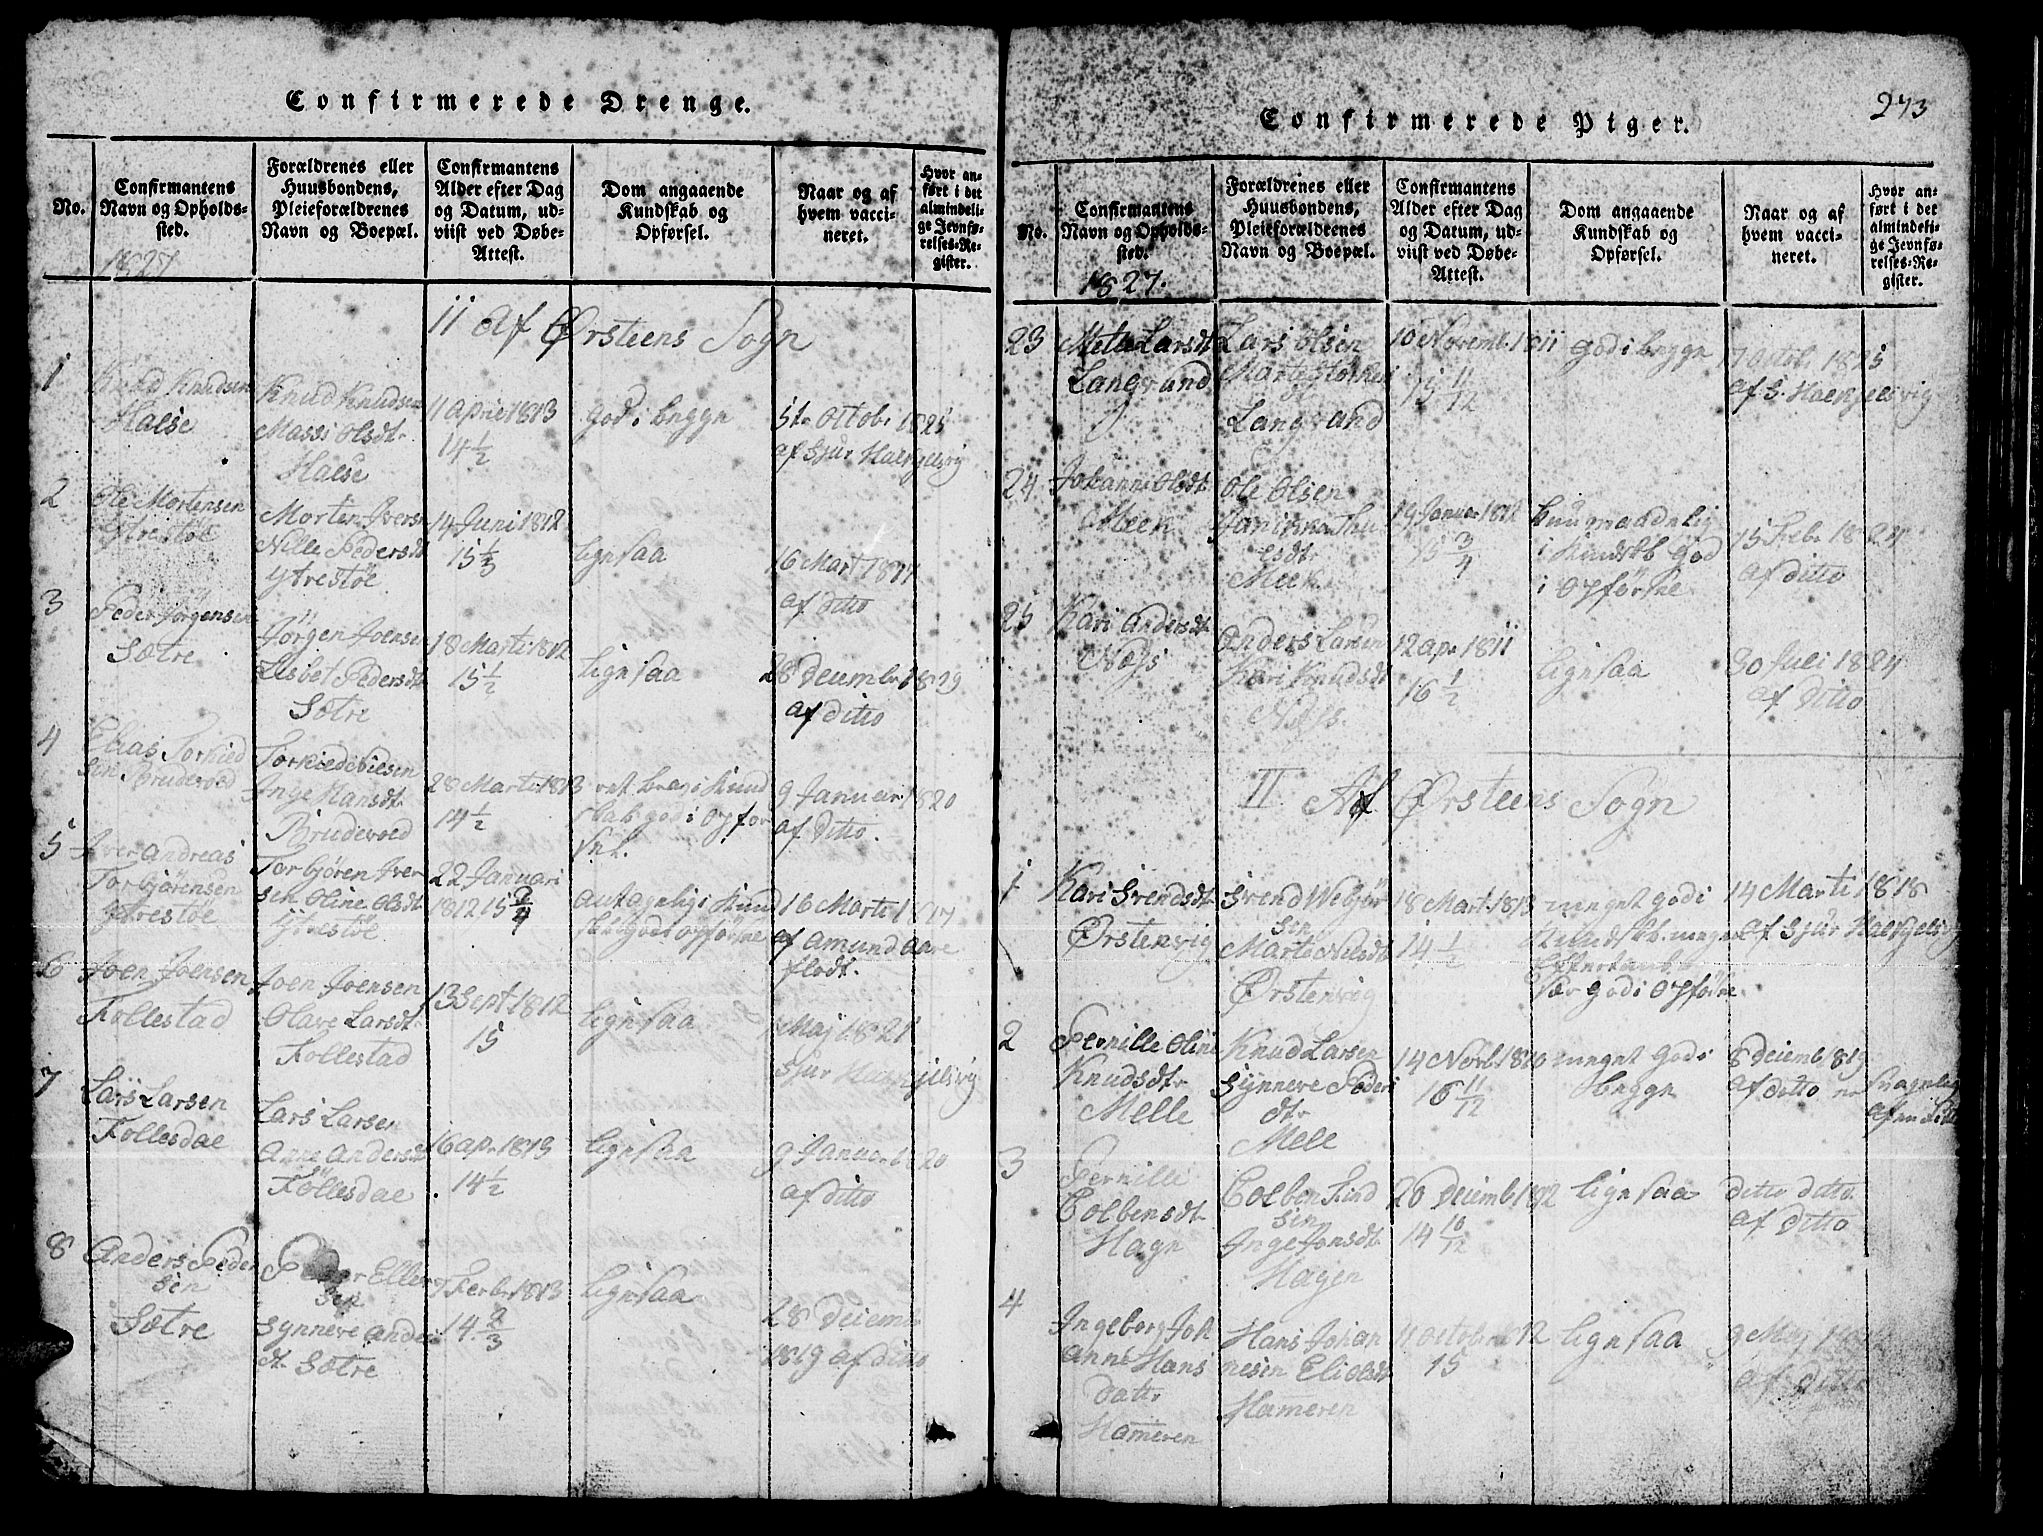 Confirmerede Drenge.
No.
Confirmantens
Navn og Opholds-
sted.
1827
Forældrenes eller
Huusbondens,
Pleieforældrenes
Navn og Boepæl.
Confirmantens
Alder efter Dag
og Datum, ud-
viist ved Døbe-
Attest.
Dom angaaende
Kundskab og
Opførsel.
Naar og af
hvem vacci-
neret.
Hvor an-
ført i det
almindeli-
ge Jevnfø-
relses-Re-
gister.
II Af Ørsteens Sogn
1
Knud Knudsen
Halse
Knud Knudsen
Massi Olsdtr
Halse
11 April 1813
14 1/2
god i begge
5te Octobr 1825
af Sjur Haevgelsvig
2
Ole Mortensen
Ytrestöe
Morten Iversn
Nille Pedersdt
Ytrestöe
14 Juni 1812
15 1/3
lignsaa
16 Mart 1817
af ditto
3
Peder Jörgensen
Sætre
Jörgen Joensen
Lisbet Pedersdt
Sætre
18 Marti 1812
15 1/2
lignsaa
28 Decembr 1829
af ditto
4
Elias Torkild
sen Brudevold
Inge Hansdt
Brudevold
28 Marti 1813
14 1/2
ret bra i Kund
skab god i opfor
sel.
9 Januar 1820
af Ditto.
5
Iver Andreas
Torbjörensen
Ytrestöe
Torbjören Iver
sen Oline Olsdt
Ytrestöe
22 Januari
1812 15 3/4
antagelig i Kund
16 Marti 1817
af Amund Aare
flodt.
6
Joen Joensen
Follestad
Joen Joensen
Olave Larsdt
Follestad
13 Sept 1812
15
lignsaa
1 Maj 1821
Sjur
7
Lars Larsen
Follesdae
Lars Larsen
Anne Andersdt
Föllesdae
16 apr 1813
14 1/2
lignsaa
9 Januar 1820
af ditto
8
Anders Peder
sen
Sætre
Eller
sen
Synneve Anders
dt Sætre
7 Febr 1813
14 2/3
lignsaa
28 Decemb
1819 af ditto
Confirmerede Piger.
273
No.
Confirmantens
Navn og Opholds-
sted.
1827.
Forældrenes eller
Huusbondens,
Pleieforældrenes
Navn og Boepæl.
Confirmantens
Alder efter Dag
og Datum, ud-
viist ved Døbe-
Attest.
Dom angaaende
Kundskab og
Opførsel.
Naar og af
hvem vacci-
neret.
Hvor an-
ført i det
almindeli-
ge Jevnfø-
relses-Re-
gister.
23
Mete Larsdt
Langvand
Lars Olsen
Marte
Langvand
10 Novemb 1811
15 11/12
god i begge
7 Octob 1825
af S. Haevgelsvig
24
Johanne Olsdt
Meek
Ole Olsen
Janikke Knu
dsdtr
Meek
19 Januar 1812
15 3/4
kuns maadelig
i Kundskb god
i opførsle
15 Febr 1824
af ditto
25
Kari Andersdt
Næss
Anders Larsen
Kari Knudsdt
Næss.
12 apr 1811
16 1/2
lignsaa
30 Juli 1824
af Ditto
II Af Ørsteens Sogn
1
Kari Svendsdt
Ørstenvig
Svend Webjör
sen
Marte Nilsdt
Ørstenvig
18 Mart. 1813
14 1/2
meget god i
Kundskb. meget
god i opførsle
14 Marti 1818
af Sjur Haevgelsvig
2
Pernille Oline
Knudsdtr
Melle
Knud Larsen
Synneve Peders
dtr
Melle
14 Novb. 1810
16 11/12
meget god i
begge
8 Decemb 1819
af ditto
3
Pernille
Colbensdt
Hagn
Colben Knud
sen
Inge Jonsdt
Hagen
20 Decemb 1812
14 10/12
lignsaa
ditto ditto
af ditto
4
Ingeborg Joh
anne Hans
datr
Hameren
Hans Johan
nesen Eli Olsdt
Hameren
11 Octobr 1812
15
lignsaa
9 Maj
af ditto